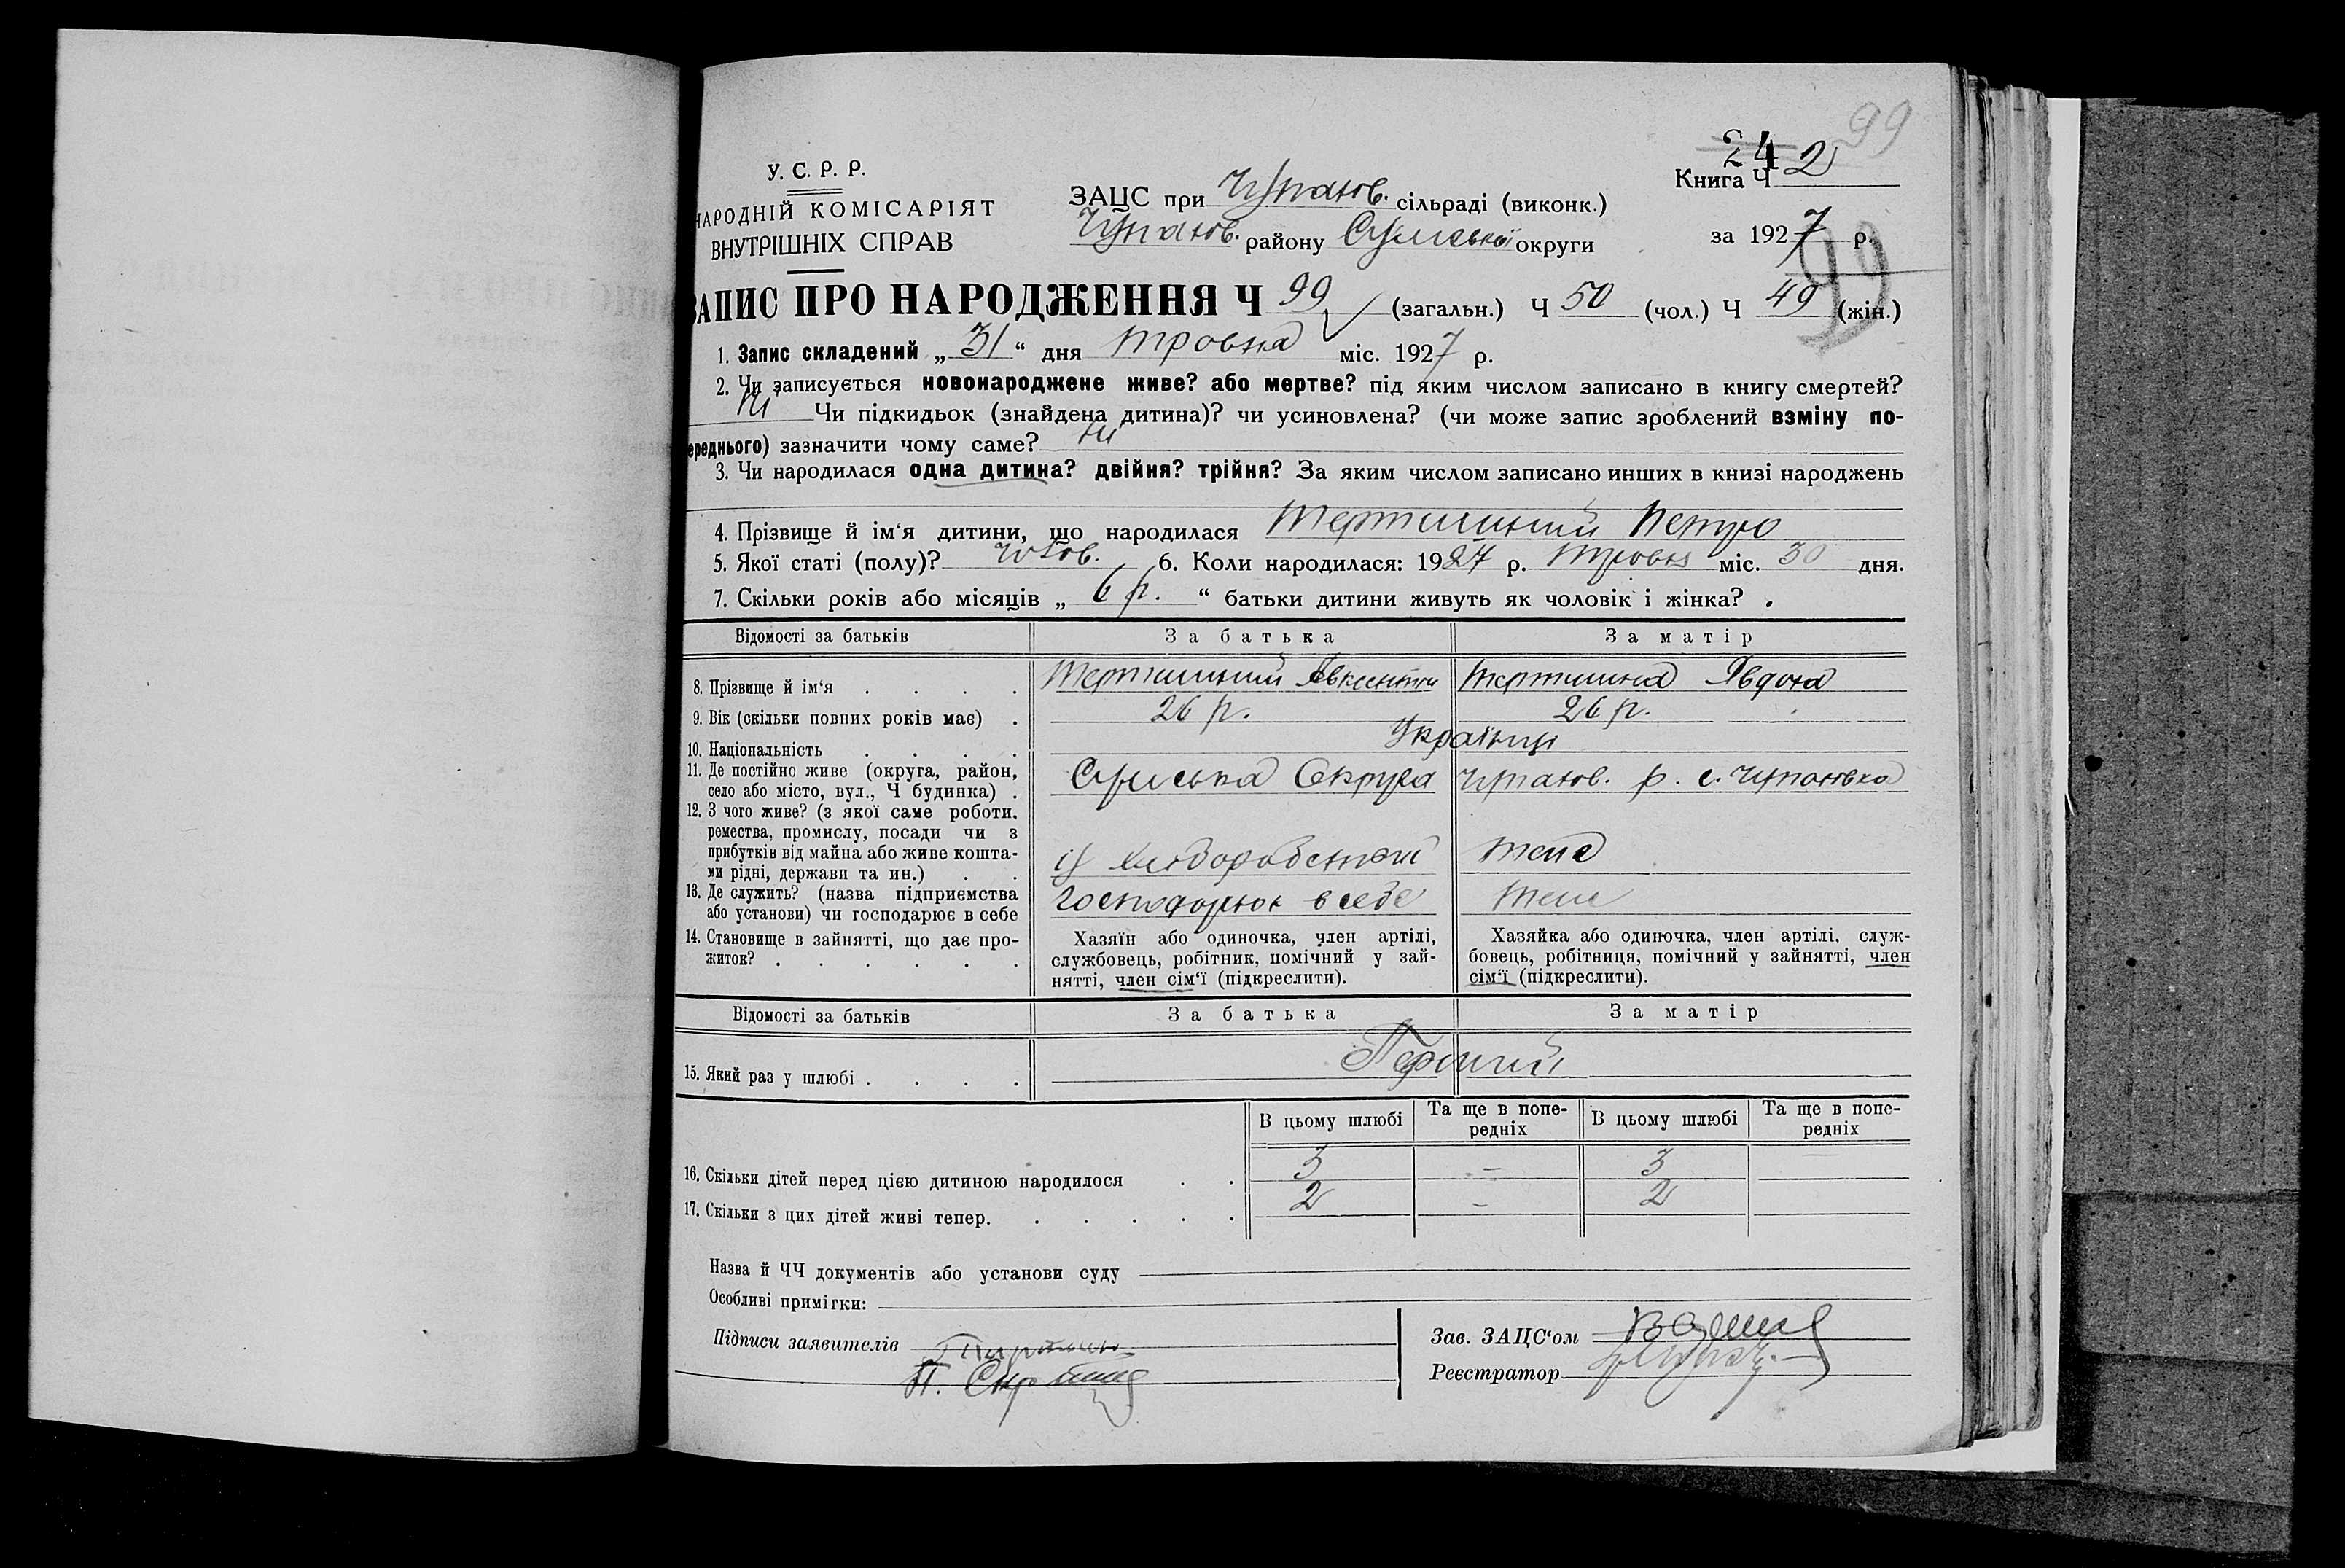 99
24 2
У. С. Р. Р.
НАРОДНІЙ КОМІСАРІЯТ
ВНУТРІШНІХ СПРАВ
ЗАЦС при Чупахов. сільраді (виконк.)
Чупахов. району Сумської округи
Книга Ч
за 1927 р.
99
ЗАПИС ПРО НАРОДЖЕННЯ Ч 99 (загальн.) Ч 50 (чол.) Ч 49 (жін.)
1. Запис складений „31“ дня травня міс. 1927 р.
2. Чи записується новонароджене живе? або мертве? під яким числом записано в книгу смертей?
ні Чи підкидьок (знайдена дитина)? чи усиновлена? (чи може запис зроблений взміну по-
ереднього) зазначити чому саме? ні
3. Чи народилася одна дитина? двійня? трійня? За яким числом записано инших в книзі народжень
4. Прізвище й ім‘я дитини, що народилася Тертишний Петро
5. Якої статі (полу)? чолов. 6. Коли народилася: 1927 р. травня міс. 30 дня.
7. Скільки років або місяців „ 6 р. “ батьки дитини живуть як чоловік і жінка?
Відомості за батьків За батька За матір
8. Прізвище й ім‘я Тертишний Явксентий Тертишна Явдоха
9. Вік (скільки повних років має) 26 р. 26 р.
10. Національність Українці
11. Де постійно живе (округа, район,
село або місто, вул., Ч будинка) Сумська Округа Чупахов. р. с. Чупахівка
12. З чого живе? (з якої саме роботи,
ремества, промислу, посади чи з
прибутків від майна або живе кошта-
ми рідні, держави та ин.) теж
13. Де служить? (назва підприємства
або установи) чи господарює в себе Господарює в себе теж
14. Становище в зайнятті, що дає про-
житок?
Хазяїн або одиночка, член артілі,
службовець, робітник, помічний у зай-
нятті, член сім‘ї (підкреслити).
Хазяйка або одиночка, член артілі, служ-
бовець, робітниця, помічний у зайнятті, член
сім‘ї (підкреслити).
Відомості за батьків За батька За матір
15. Який раз у шлюбі Перший
В цьому шлюбі Та ще в попе-
редніх В цьому шлюбі Та ще в попе-
редніх
16. Скільки дітей перед цією дитиною народилося 3 – 3
17. Скільки з цих дітей живі тепер. 2 – 2
Назва й ЧЧ документів або установи суду
Особливі примігки:
Підписи заявителів
Зав. ЗАЦС‘ом
Реєстратор